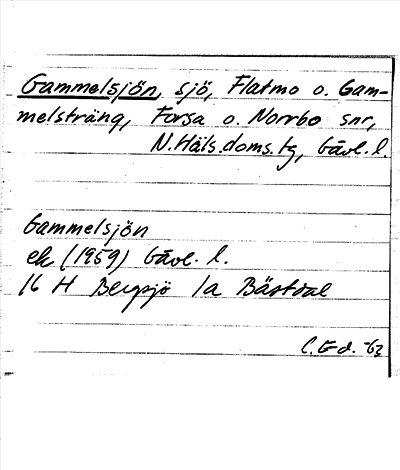 Gammelsjön, sjö, Flatmo o. Gam-
melsträng, Forsa o. Norrbo snr,
N.Häls.doms.tg, Gävl. l.
Gammelsjön
ek (1959) Gävl. l.
16 H Bergsjö 1a Bästdal
C.Ed. -62